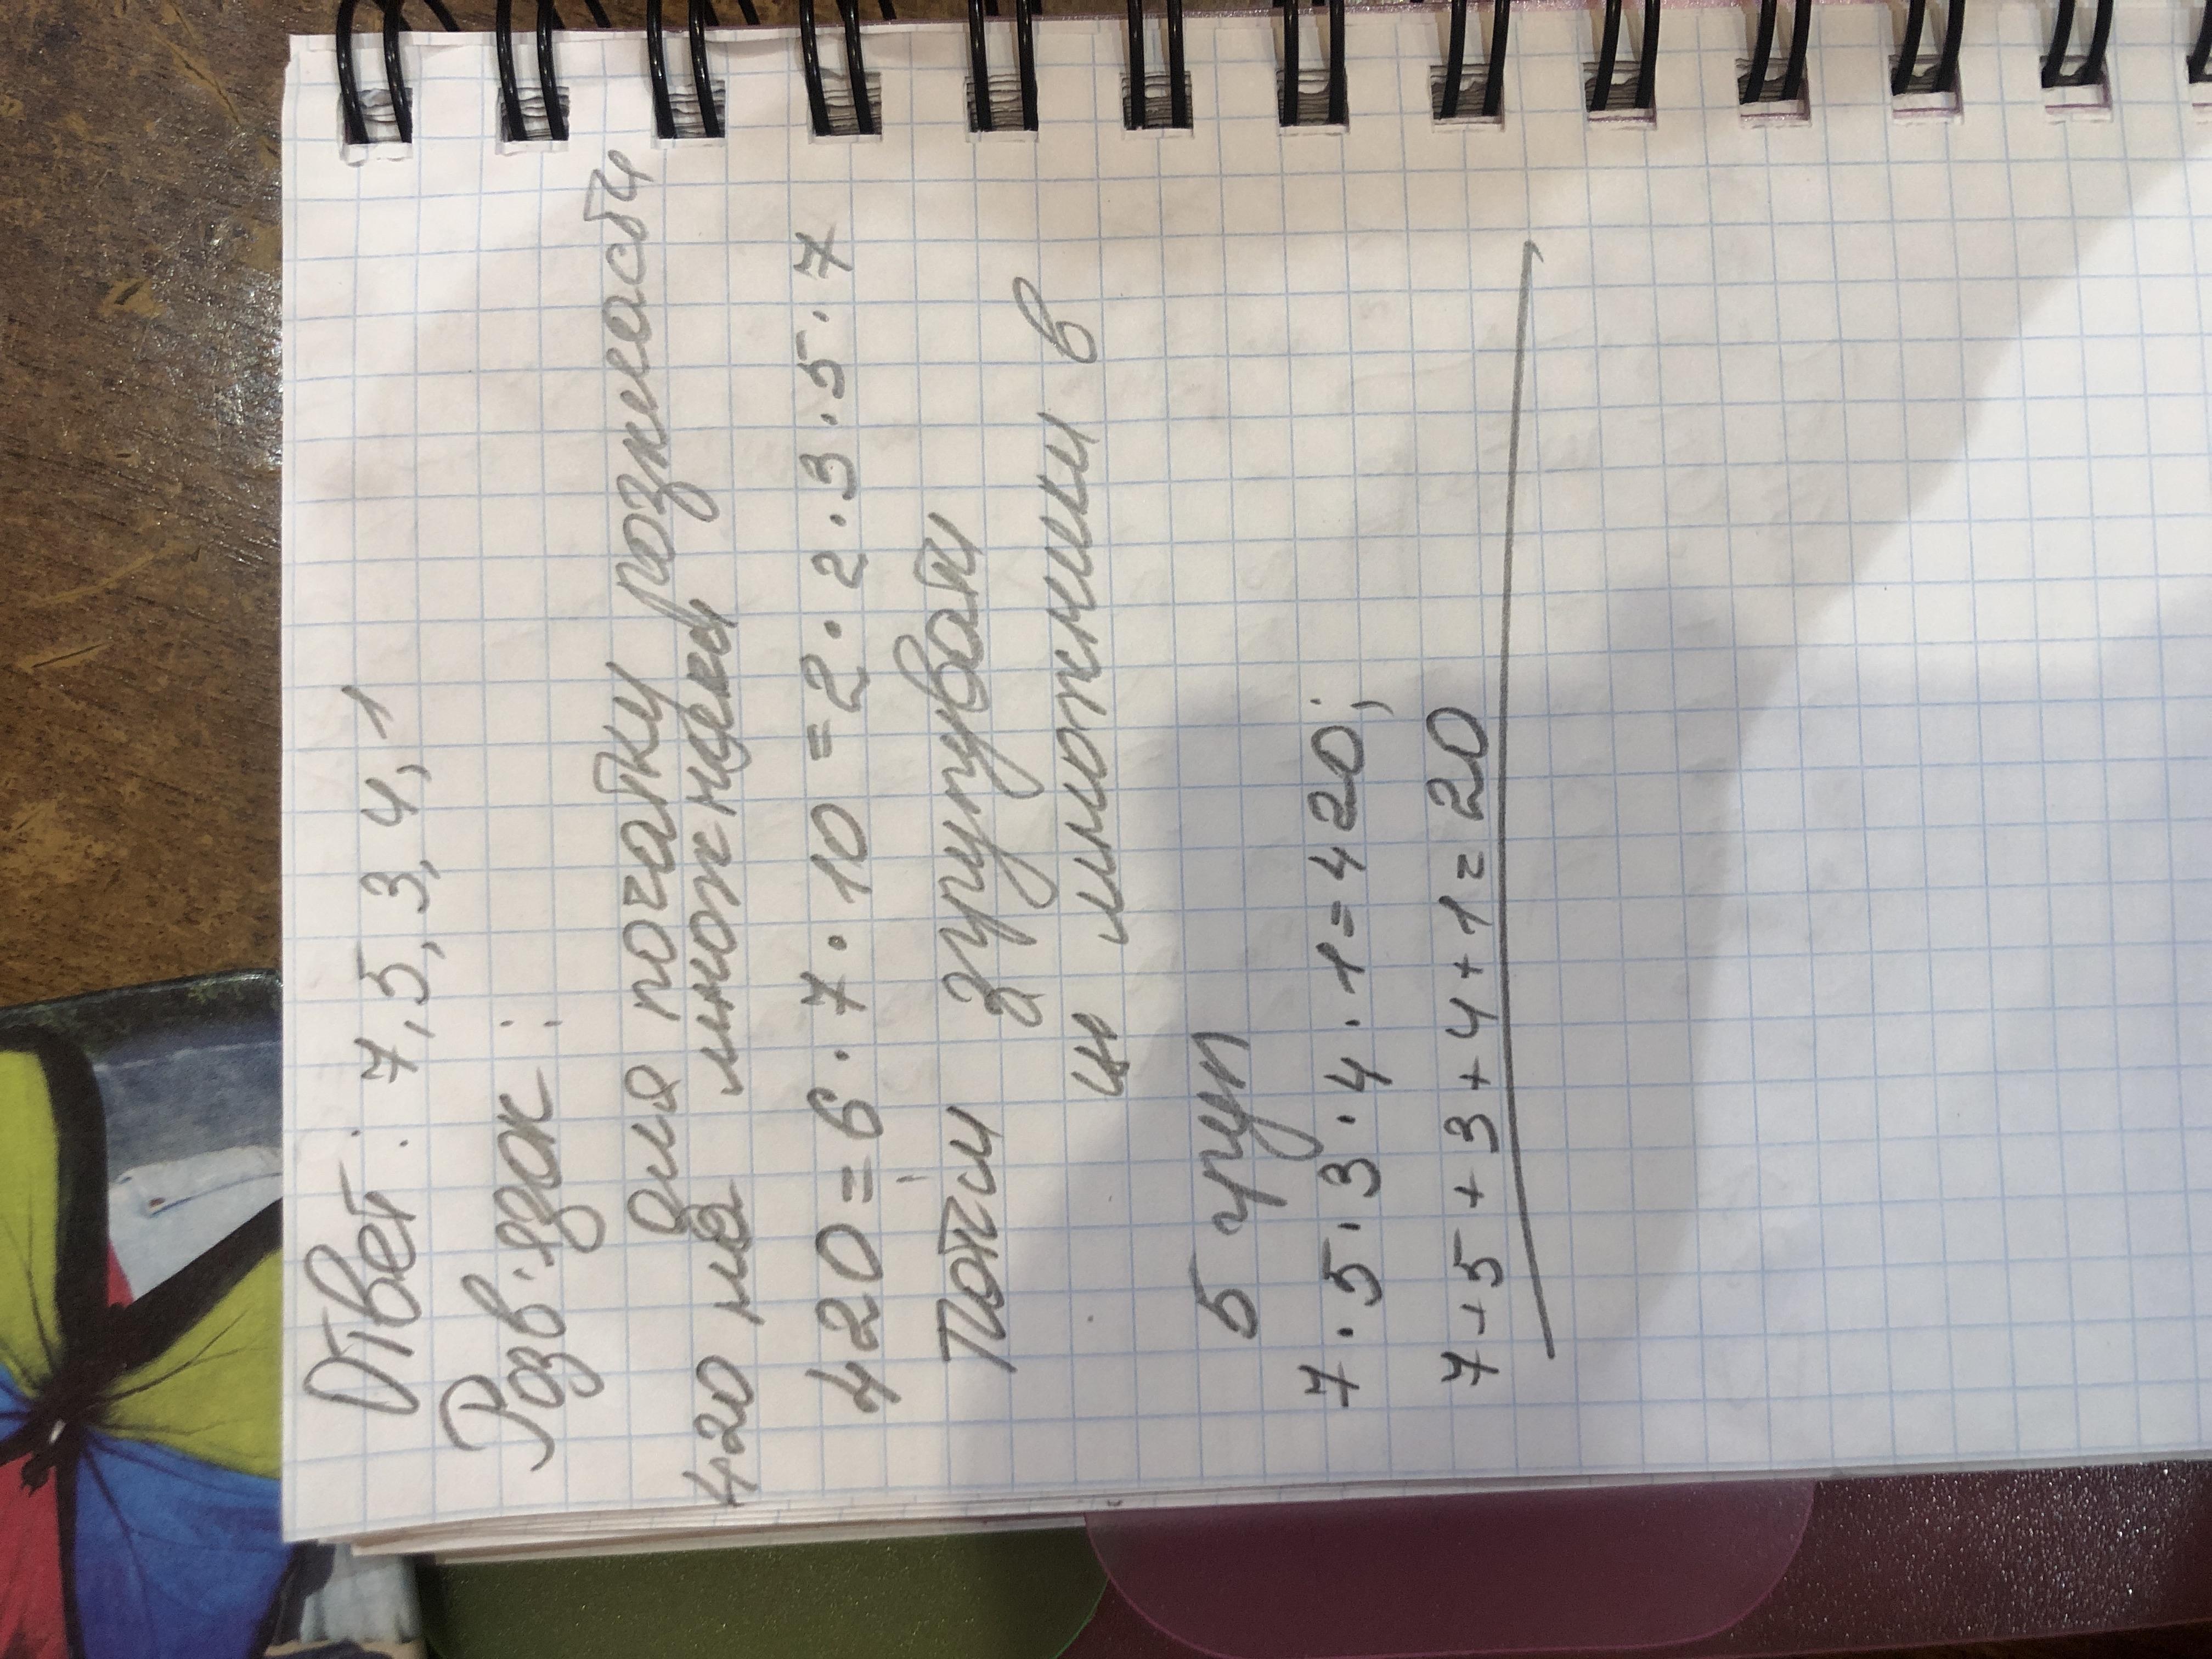 Ответ: 7, 5, 3, 4, 1
Розв'язок:
Для початку розкласти
420 на множники
420 = 6 · 7 · 10 = 2 · 2 · 3 · 5 · 7
Потім згрупувати
ці множники в
5 груп
7 · 5 · 3 · 4 · 1 = 420;
7 + 5 + 3 + 4 + 1 = 20